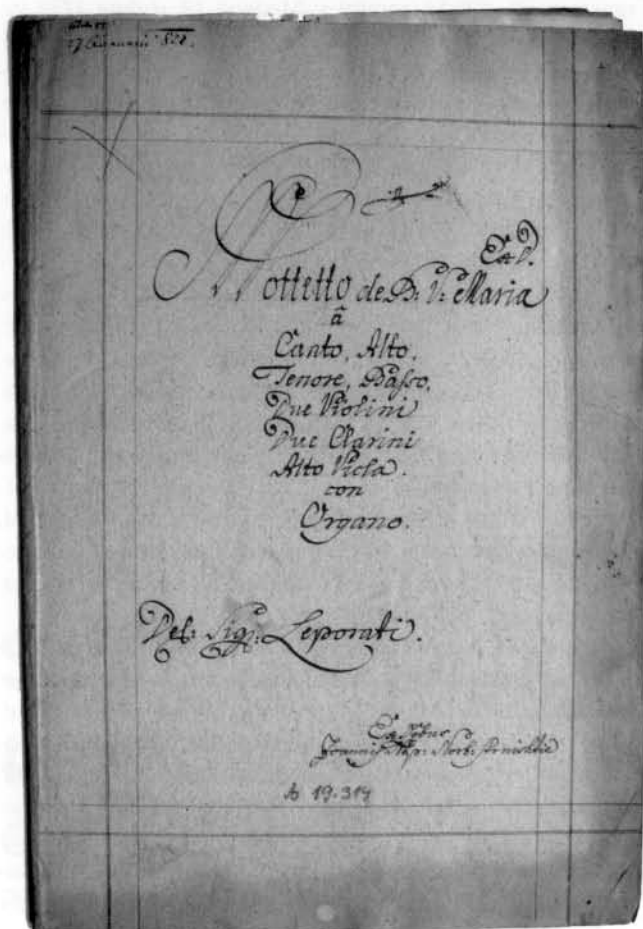 Ex D.
Mottetto de B: V: Maria
â
Canto, Alto.
Tenore, Basso,
Due Violini
Due Clarini
Alto Viola.
con
Organo.
Del: Sigr: Leporati.
Joannis Nep: Norb:
A 19.314